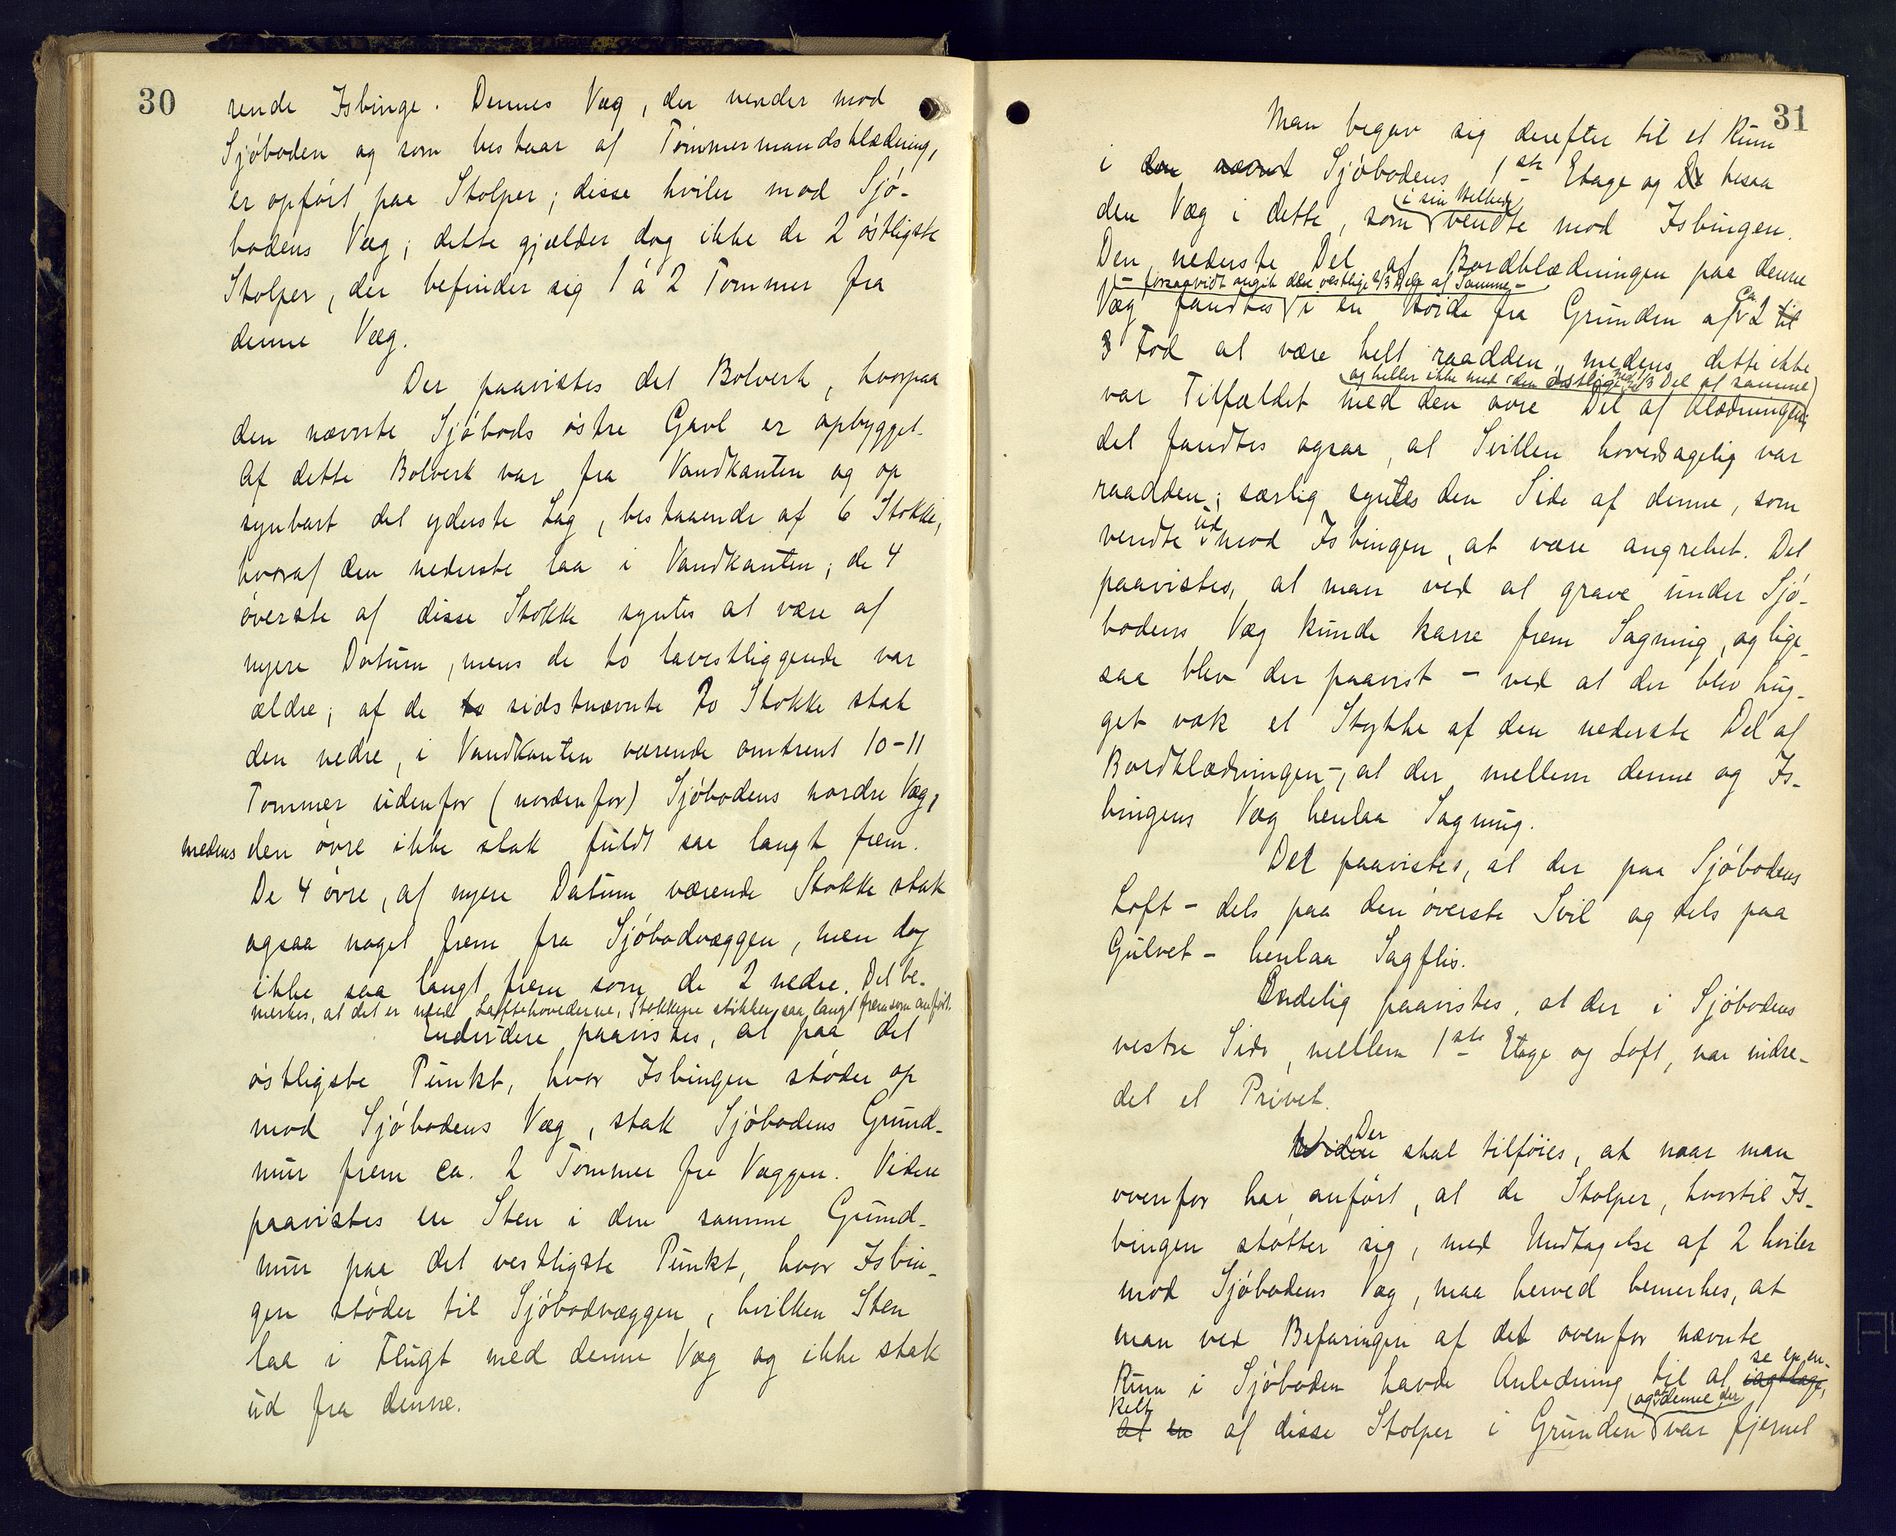 30
rende Isbinge. Dennes Væg, der vender mod
Sjøboden og som bestaar af Tømmermandsklædning,
er opført paa Stolper; disse hviler mod Sjø-
bodens Væg; dette gjælder dog ikke de 2 østligste
Stolper, der befinder sig 1 à 2 Tommer fra
denne Væg.
Der paavistes det Bolverk, hvorpaa
den nævnte Sjøbods østre Gavl er opbygget.
Af dette Bolverk var fra Vandkanten og op
synbart det yderste Lag, bestaaende af 6 Stokke,
hvoraf den nederste laa i Vandkanten; de 4
øverste af disse Stokke syntes at være af
nyere Datum, mens de to lavestliggende var
ældre; af de to sidstnævnte to Stokke stak
den nedre, i Vandkanten værende omtrent 10-11
Tommer udenfor (nordenfor) Sjøbodens nordre Væg,
medens den øvre ikke stak fuldt saa langt frem.
De 4 øvre, af nyere Datum værende Stokke stak
ogsaa noget frem fra Sjøbodvæggen, men dog
ikke saa langt frem som de 2 nedre. Det be-
merkes, at det er med Laftehovederne, Stokkene stikker saa langt frem som anført.
Endvidere paavistes, at paa det
østligste Punkt, hvor Isbingen støder op
mod Sjøbodens Væg, stak Sjøbodens Grund-
mur frem ca. 2 Tommer fra Væggen. Videre
paavistes en Sten i den samme Grund-
mur paa det vestligste Punkt, hvor Isbin-
gen støder til Sjøbodvæggen, hvilken Sten
laa i Flugt med denne Væg og ikke stak
ud fra denne.
31
Man begav sig derefter til et Rum
i den nævnt Sjøbodens 1ste Etage og De besaa
i sin Helhed
den Væg i dette, som vendte mod Isbingen.
Den nederste Del af Bordklædningen paa denne
- forsaavidt angik den vestlige 2/3 Del af samme -
Væg fandtes i en Høide fra Grunden af ca 2 til
3 Fod at være helt raadden, medens dette ikke
og heller ikke med den østlige 1/3 Del af samme
var Tilfældet med den øvre Del af Klædningen;
det fandtes ogsaa, at Svillen hovedsagelig var
raadden; særlig syntes den Side af denne, som
vendte ud mod Isbingen, at være angrebet. Det
paavistes, at man ved at grave under Sjø-
bodens Væg kunde karre frem Sagmug, og lige-
saa blev der paavist - ved at der blev hug-
get væk et Stykke af den nederste Del af
Bordklædningen -, at der mellem denne og Is-
bingens Væg henlaa Sagmug.
Det paavistes, at der paa Sjøbodens
Loft - dels paa den øverste Svil og dels paa
Gulvet - henlaa Sagflis.
Endelig paavistes, at der i Sjøbodens
vestre Side, mellem 1ste Etage og Loft, var indre-
det et Privet.
Der
Hvidere skal tilføies, at naar man
ovenfor har anført, at de Stolper, hvortil Is-
bingen støtter sig, med Undtagelse af 2 hviler
mod Sjøbodens Væg, maa herved bemerkes, at
man ved Befaringen af det ovenfor nævnte
se en en-
Rum i Sjøboden havde Anledning til at iagttage,
kelt
og denne der
at en af disse Stolper i Grunden var fjernet